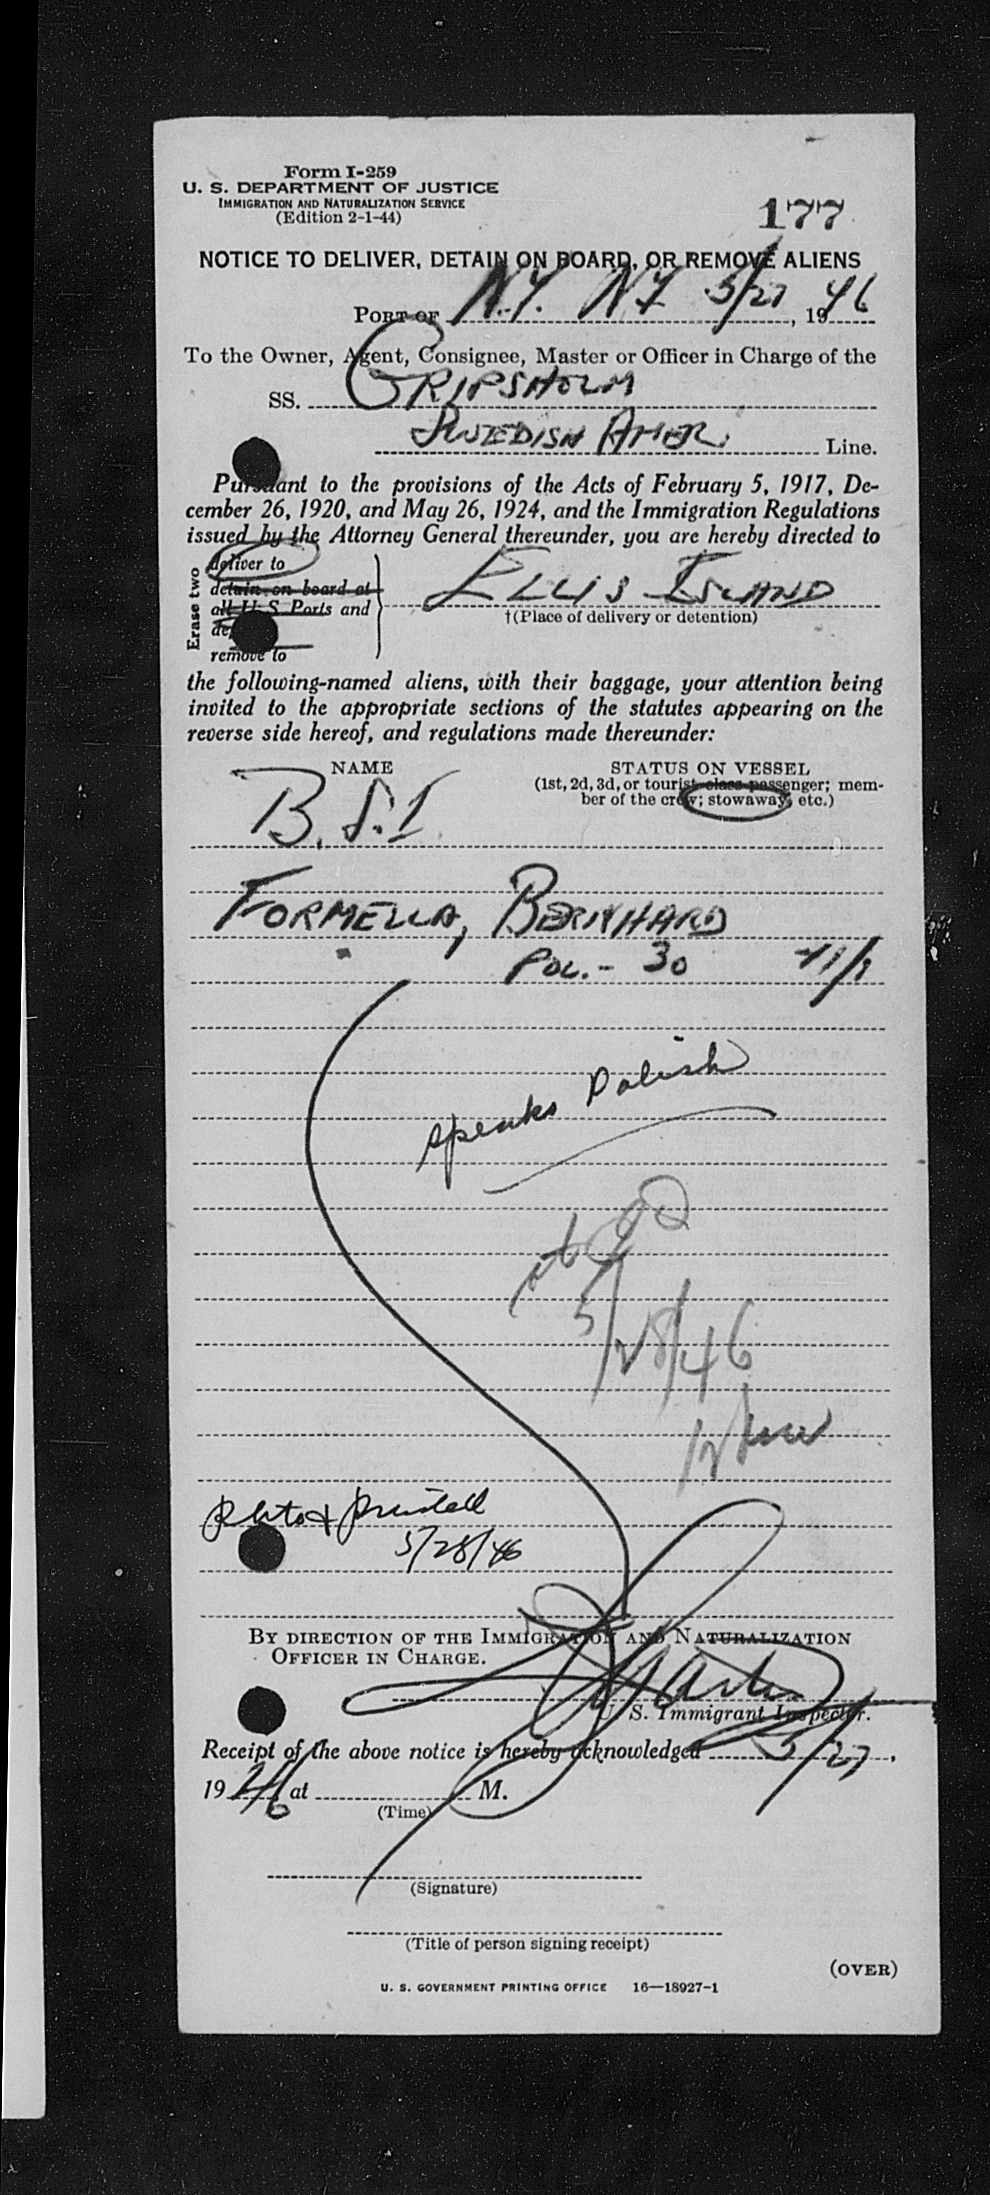 Form I-259
U. S. DEPARTMENT OF JUSTICE
IMMIGRATION AND NATURALIZATION SERVICE
(Edition 2-1-44)
177
NOTICE TO DELIVER, DETAIN ON BOARD, OR REMOVE ALIENS
PORT OF N.Y. N.Y. 5/27, 1946
To the Owner, Agent, Consignee, Master or Officer in Charge of the
SS. GRIPSHOLM
SWEDISH AMER. Line.
Pursuant to the provisions of the Acts of February 5, 1917, De-
cember 26, 1920, and May 26, 1924, and the Immigration Regulations
issued by the Attorney General thereunder, you are hereby directed to
Erase two
deliver to
detain on board at
all U. S. Ports and
remove to
ELLIS ISLAND
†(Place of delivery or detention)
the following-named aliens, with their baggage, your attention being
invited to the appropriate sections of the statutes appearing on the
reverse side hereof, and regulations made thereunder:
NAME
STATUS ON VESSEL
(1st, 2d, 3d, or tourist class passenger; mem-
ber of the crew; stowaway, etc.)
B.S.I.
FORMELLA, BERNHARD
POL. - 30
speaks Polish
5/28/46
Photo &
5/28/46
BY DIRECTION OF THE IMMIGRATION AND NATURALIZATION
OFFICER IN CHARGE.
U. S. Immigrant Inspector.
Receipt of the above notice is hereby acknowledged 5/27,
1946 at M.
(Time)
(Signature)
(Title of person signing receipt)
(OVER)
U. S. GOVERNMENT PRINTING OFFICE 16—18927-1